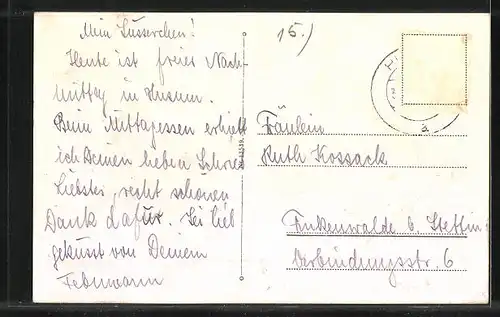 Mein Süsserchen!
Heute ist freier Nach-
mittag in Husum.
Beim Mittagessen erhielt
ich Deinen lieben Schrei
Liebster, recht schönen
Dank dafür. Sei lieb
geküsst von Deinem
15.)
Fräulein
Ruth Kossack
Finkenwalde b. Stettin
Verbindungsstr. 6